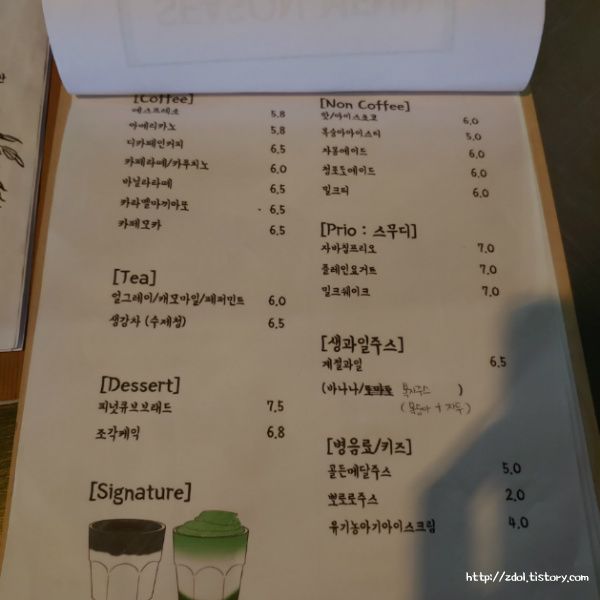 [Coffee]
에스프레소 5.8
아메리카노 5.8
디카페인커피 6.5
카페라떼/카푸치노 6.0
바닐라라떼 6.5
카라멜마끼아또 6.5
카페모카 6.5
[Tea]
얼그레이/캐모마일/페퍼민트 6.0
생강차 (수제청) 6.5
[Dessert]
피넛큐브브래드 7.5
조각케익 6.8
[Signature]
[Non Coffee]
핫/아이스초코 6.0
복숭아아이스티 5.0
자몽에이드 6.0
청포도에이드 6.0
밀크티 6.0
[Prio : 스무디]
자바칩프리오 7.0
플레인요거트 7.0
밀크쉐이크 7.0
[생과일주스]
계절과일 6.5
(바나나/토마토 복자주스 )
(복숭아 + 자두)
[병음료/키즈]
골든메달주스 5.0
뽀로로주스 2.0
유기농아기아이스크림 4.0
http://zdol.tistory.com